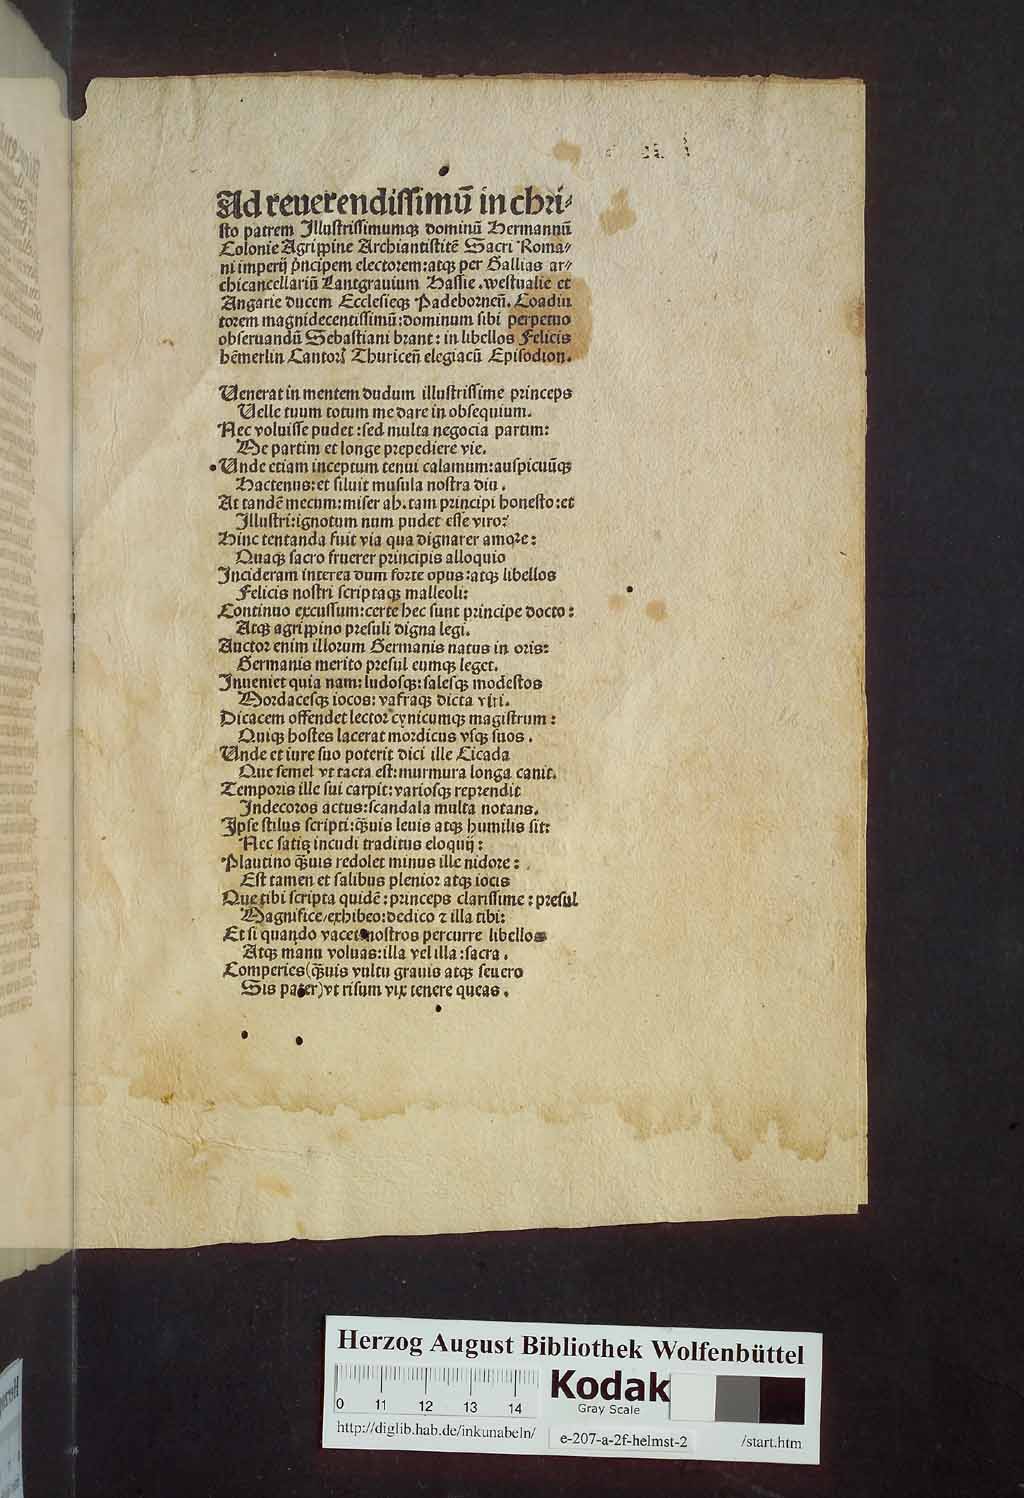 Ad reuerendissimū in chri⸗
sto patrem Illustrissimumqꝫ dominū Hermannū
Colonie Agrippine Archiantistitē Sacri Roma⸗
ni imperij p̄ncipem electorem: atqꝫ per Gallias ar⸗
chicancellariū Lantgrauium Hassie. westualie et
Angarie ducem Ecclesieqꝫ Padebornen̄. Coadiu
torem magnidecentissimū: dominum sibi perpetuo
obseruandū Sebastiani brant: in libellos Felicis
hēmerlin Cantoris Thuricen̄ elegiacū Episodion.
Uenerat in mentem dudum illustrissime princeps
Uelle tuum totum me dare in obsequium.
Nec voluisse pudet: sed multa negocia partim:
Me partim et longe prepediere vie.
Unde etiam inceptum tenui calamum: auspicuūqꝫ
Hactenus: et siluit musula nostra diu.
At tandē mecum: miser ah. tam principi honesto: et
Illustri: ignotum num pudet esse viro?
Hinc tentanda fuit via qua dignarer amore:
Quaqꝫ sacro fruerer principis alloquio
Incideram interea dum forte opus: atqꝫ libellos
Felicis nostri scriptaqꝫ malleoli:
Continuo excussum: certe hec sunt principe docto:
Atqꝫ agrippino presuli digna legi.
Auctor enim illorum Germanis natus in oris:
Germanis merito presul eumqꝫ leget.
Inueniet quia nam: ludosqꝫ: salesqꝫ modestos
Mordacesqꝫ iocos: vafraqꝫ dicta viri.
Dicacem offendet lector cynicumqꝫ magistrum:
Quiqꝫ hostes lacerat mordicus vsqꝫ suos.
Unde et iure suo poterit dici ille Cicada
Que semel vt tacta est: murmura longa canit.
Temporis ille sui carpit: variosqꝫ reprendit
Indecoros actus: scandala multa notans.
Ipse stilus scripti: q̄uis leuis atqꝫ humilis sit:
Nec satis incudi traditus eloquij:
Plautino q̄uis redolet minus ille nidore:
Est tamen et salibus plenior atqꝫ iocis
Que tibi scripta quidē: princeps clarissime: presul
Magnifice/exhibeo: dedico ⁊ illa tibi:
Et si quando vacet nostros percurre libellos
Atqꝫ manu voluas: illa vel illa: sacra.
Comperies (q̄uis vultu grauis atqꝫ seuero
Sis pater) vt risum vix tenere queas.
Herzog August Bibliothek Wolfenbüttel
0 11 12 13 14
Kodak
Gray Scale
http://diglib.hab.de/inkunabeln/ e-207-a-2f-helmst-2 /start.htm